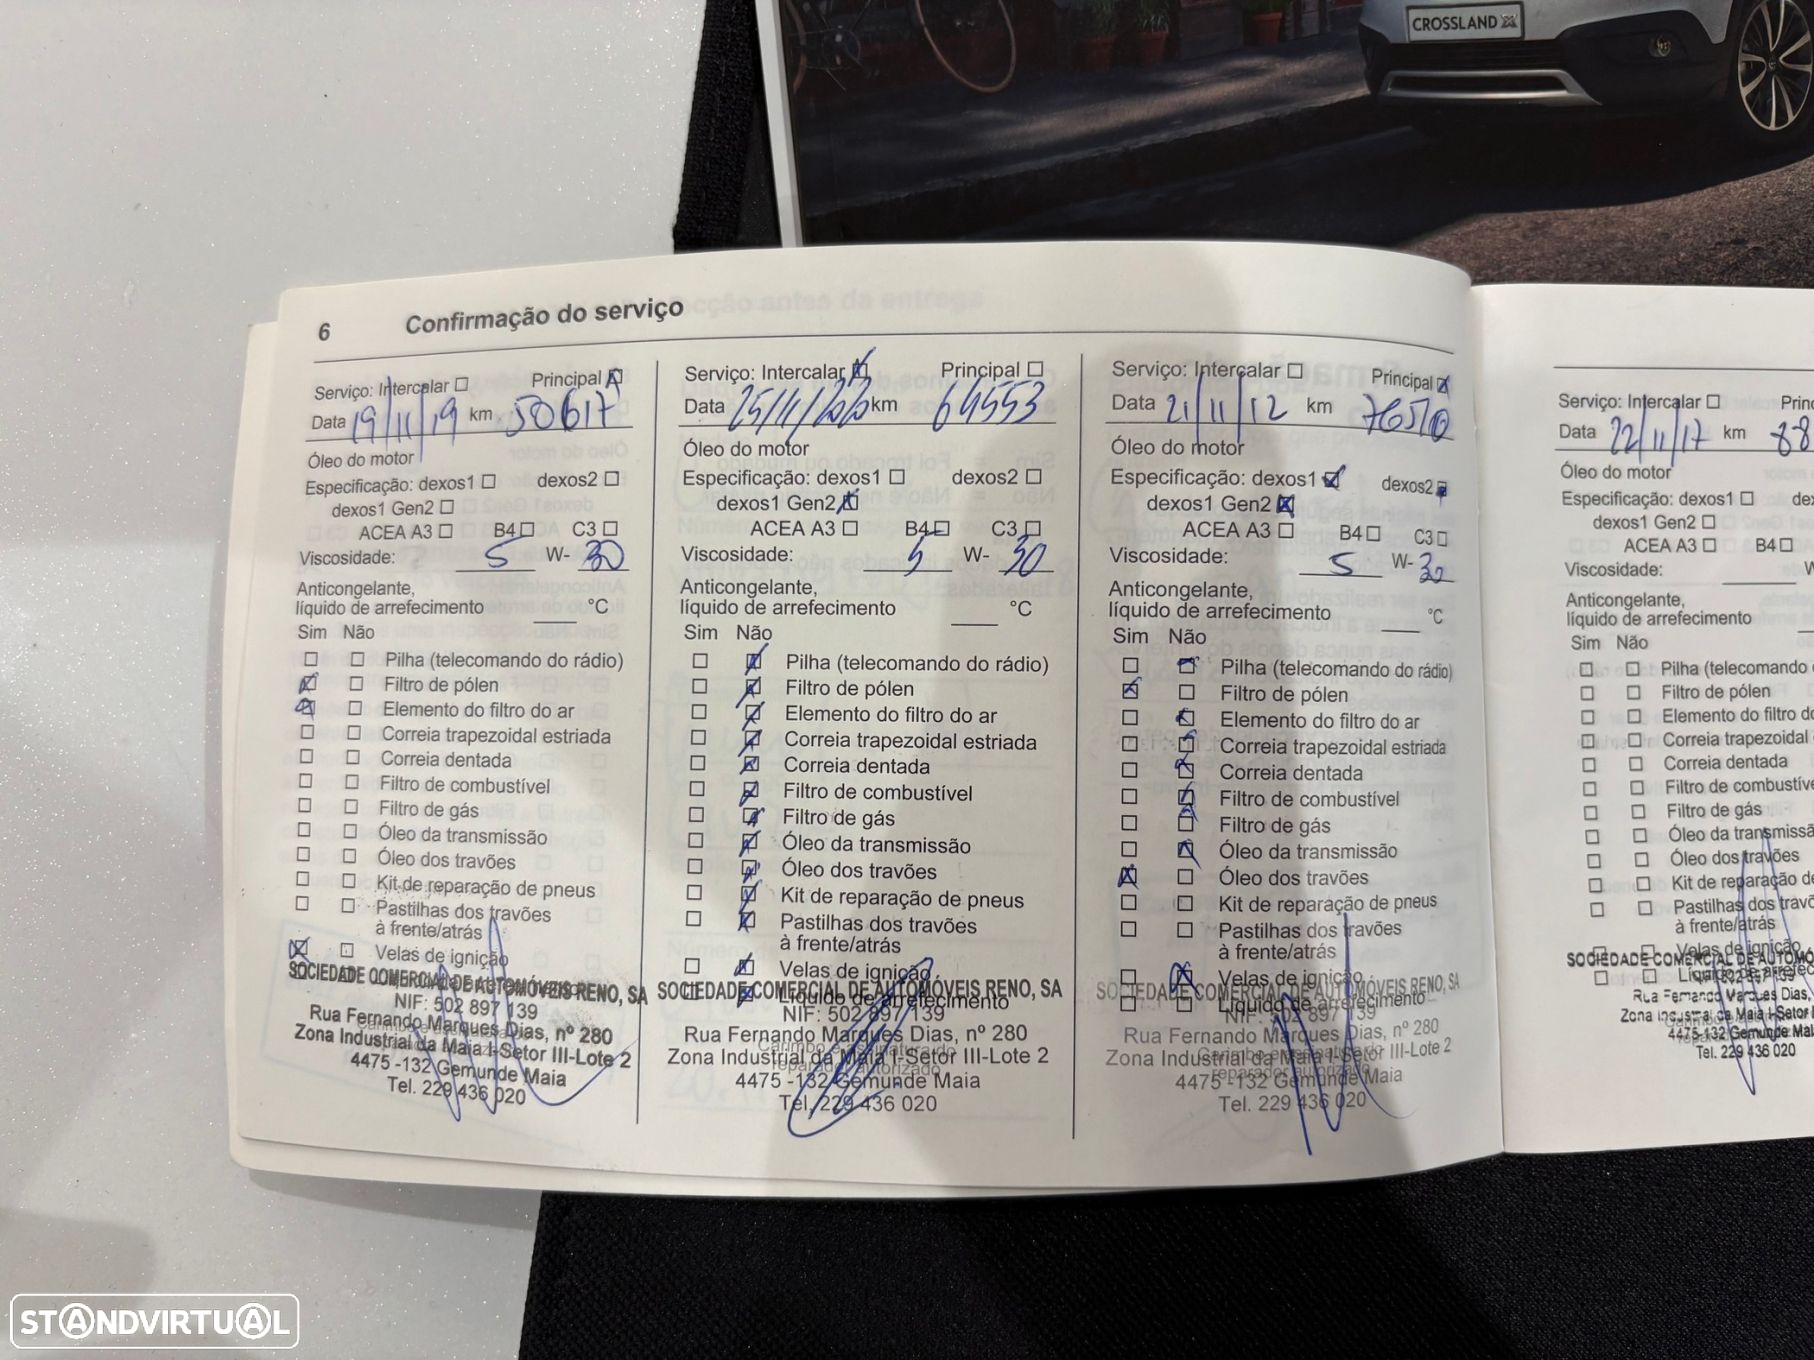 CROSSLAND X
6 Confirmação do serviço
Serviço: Intercalar Principal
Data 19/11/19 km 50617
Óleo do motor
Especificação: dexos1 dexos2
dexos1 Gen2
ACEA A3 B4 C3
Viscosidade: 5 W- 30
Anticongelante,
líquido de arrefecimento °C
Sim Não
Pilha (telecomando do rádio)
Filtro de pólen
Elemento do filtro do ar
Correia trapezoidal estriada
Correia dentada
Filtro de combustível
Filtro de gás
Óleo da transmissão
Óleo dos travões
Kit de reparação de pneus
Pastilhas dos travões
à frente/atrás
Velas de ignição
SOCIEDADE COMERCIAL DE AUTOMÓVEIS RENO, SA
NIF: 502 897 139
Rua Fernando Marques Dias, nº 280
Zona Industrial da Maia I-Setor III-Lote 2
4475 -132 Gemunde Maia
Tel. 229 436 020
Serviço: Intercalar Principal
Data 25/11/20 km 64553
Óleo do motor
Especificação: dexos1 dexos2
dexos1 Gen2
ACEA A3 B4 C3
Viscosidade: 5 W- 30
Anticongelante,
líquido de arrefecimento °C
Sim Não
Pilha (telecomando do rádio)
Filtro de pólen
Elemento do filtro do ar
Correia trapezoidal estriada
Correia dentada
Filtro de combustível
Filtro de gás
Óleo da transmissão
Óleo dos travões
Kit de reparação de pneus
Pastilhas dos travões
à frente/atrás
Velas de ignição
Líquido de arrefecimento
SOCIEDADE COMERCIAL DE AUTOMÓVEIS RENO, SA
NIF: 502 897 139
Rua Fernando Marques Dias, nº 280
Zona Industrial da Maia I-Setor III-Lote 2
Carimbo e assinatura do
reparador autorizado
4475 -132 Gemunde Maia
Tel. 229 436 020
Serviço: Intercalar Principal
Data 21/11/12 km 76570
Óleo do motor
Especificação: dexos1 dexos2
dexos1 Gen2
ACEA A3 B4 C3
Viscosidade: 5 W- 30
Anticongelante,
líquido de arrefecimento °C
Sim Não
Pilha (telecomando do rádio)
Filtro de pólen
Elemento do filtro do ar
Correia trapezoidal estriada
Correia dentada
Filtro de combustível
Filtro de gás
Óleo da transmissão
Óleo dos travões
Kit de reparação de pneus
Pastilhas dos travões
à frente/atrás
Velas de ignição
Líquido de arrefecimento
SOCIEDADE COMERCIAL DE AUTOMÓVEIS RENO, SA
NIF: 502 897 139
Rua Fernando Marques Dias, nº 280
Zona Industrial da Maia I-Setor III-Lote 2
Carimbo e assinatura do
reparador autorizado
4475 -132 Gemunde Maia
Tel. 229 436 020
Serviço: Intercalar Princ
Data 22/11/17 km 88
Óleo do motor
Especificação: dexos1 de
dexos1 Gen2
ACEA A3 B4
Viscosidade: W
Anticongelante,
líquido de arrefecimento
Sim Não
Pilha (telecomando
Filtro de pólen
Elemento do filtro do
Correia trapezoidal
Correia dentada
Filtro de combustíve
Filtro de gás
Óleo da transmissã
Óleo dos travões
Kit de reparação de
Pastilhas dos travõ
à frente/atrás
Velas de ignição
SOCIEDADE COMERCIAL DE AUTOMÓ
Rua Fernando Marques Dias,
Zona Industrial da Maia I-Setor I
4475-132 Gemunde Mai
Tel. 229 436 020
STANDVIRTUAL